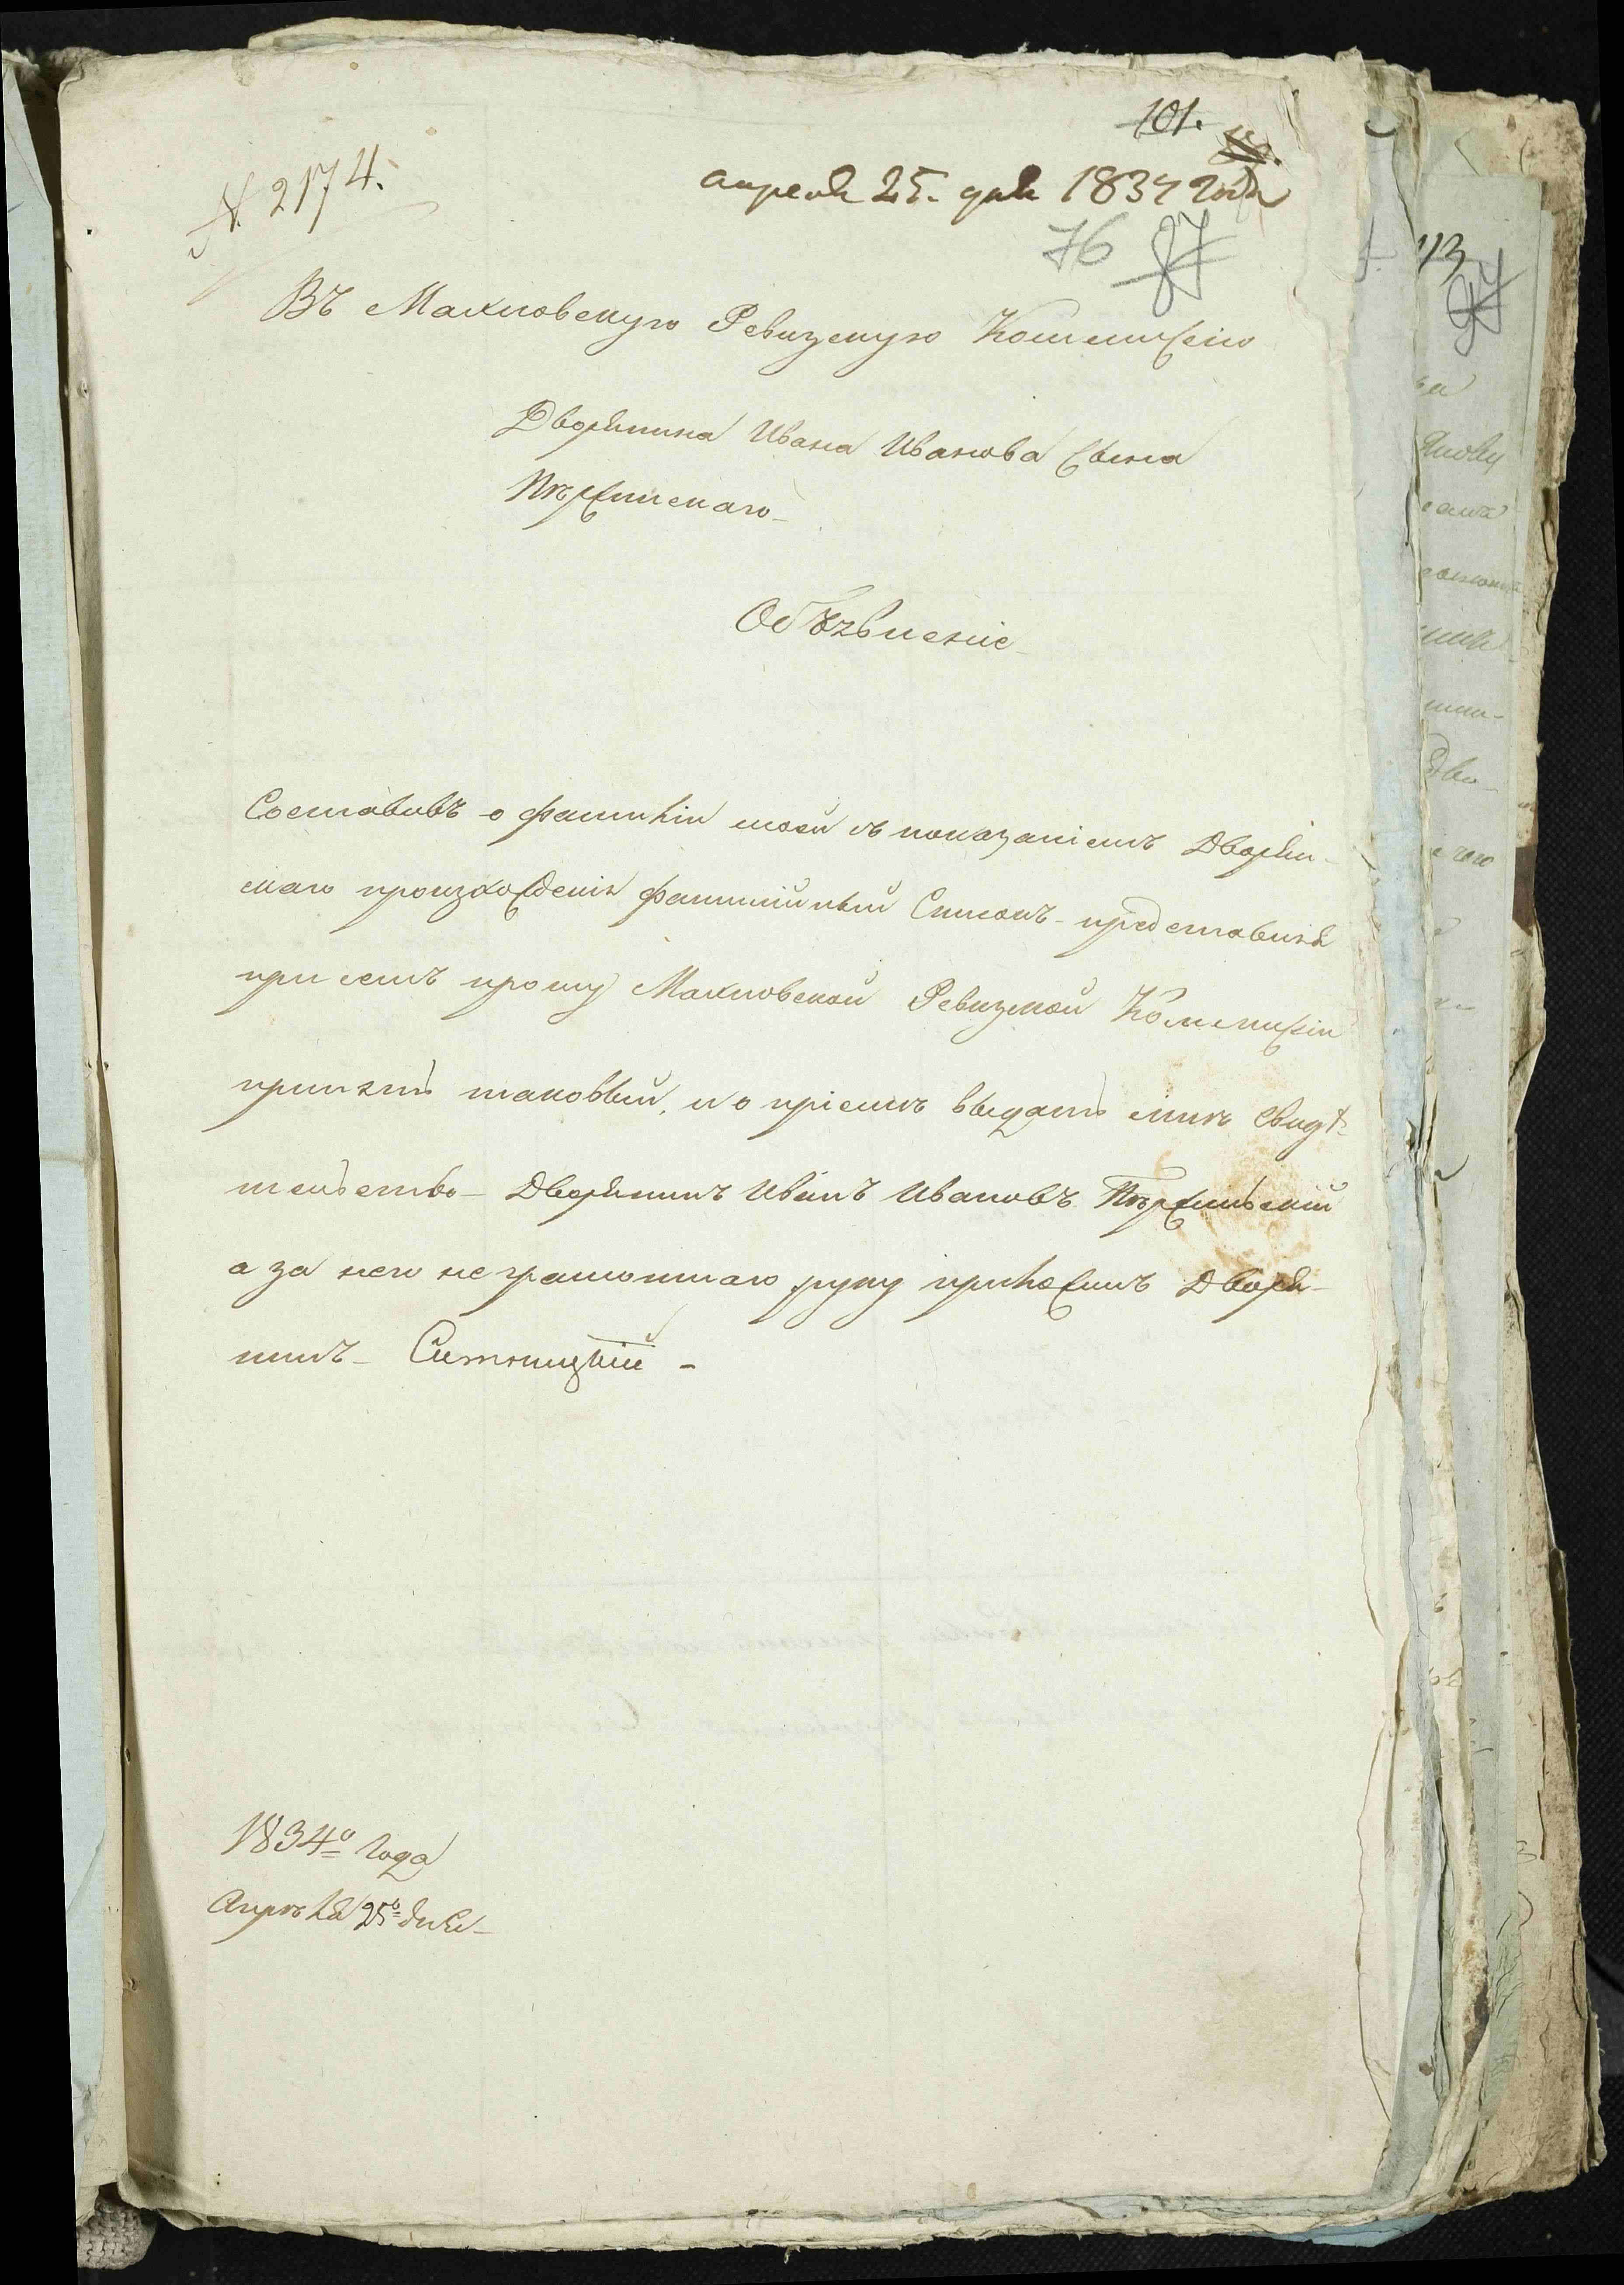 101.
N. 2174.
апреля 25. дня 1834 года
76 87
Въ Махновскую Ревизскую Коммисію
Дворянина Ивана Иванова Сына
Пержинскаго
Объявленіе
Составивъ о фамиліи моей съ показаніемъ Дворян-
скаго произхожденія фамилійный Списокъ - представляя
при семъ прошу Махновской Ревизкой Коммисіи
принять таковый, и о пріемѣ выдать мнѣ свидѣ-
тельство - Дворянинъ Иванъ Ивановъ Пержинскій
а за него не грамотнаго руку приложилъ Дворя-
нинъ - Ситницкій -
1834го Года
Апрѣля 25го дня -
113